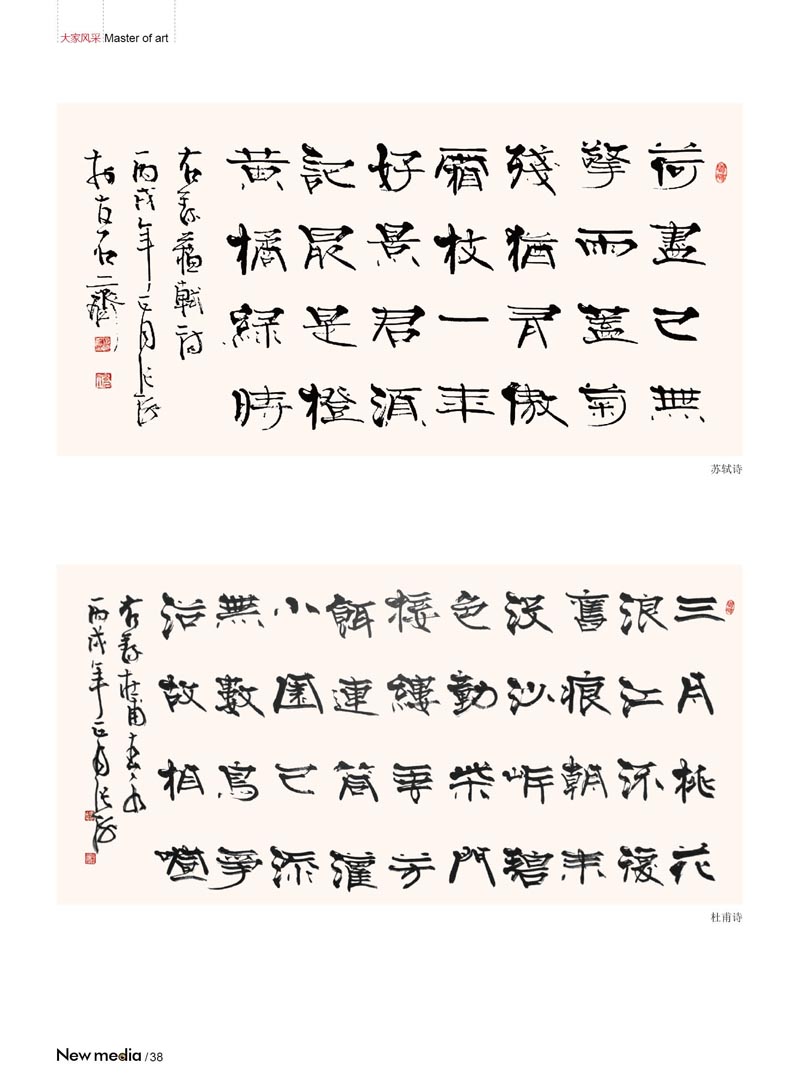 大家风采 Master of art
荷盡已無
擎雨蓋菊
殘猶有傲
霜枝一年
好景君須
記最是橙
黃橘綠時
右錄蘇軾詩
丙戌年正月張
友石二齋
苏轼诗
三月桃花
浪江流復
舊痕朝來
沒沙岸碧
色動柴門
接縷垂芳
餌連筒灌
小園已添
無數鳥爭
浴故相喧
右錄杜甫春水
丙戌年正月張
杜甫诗
New media / 38